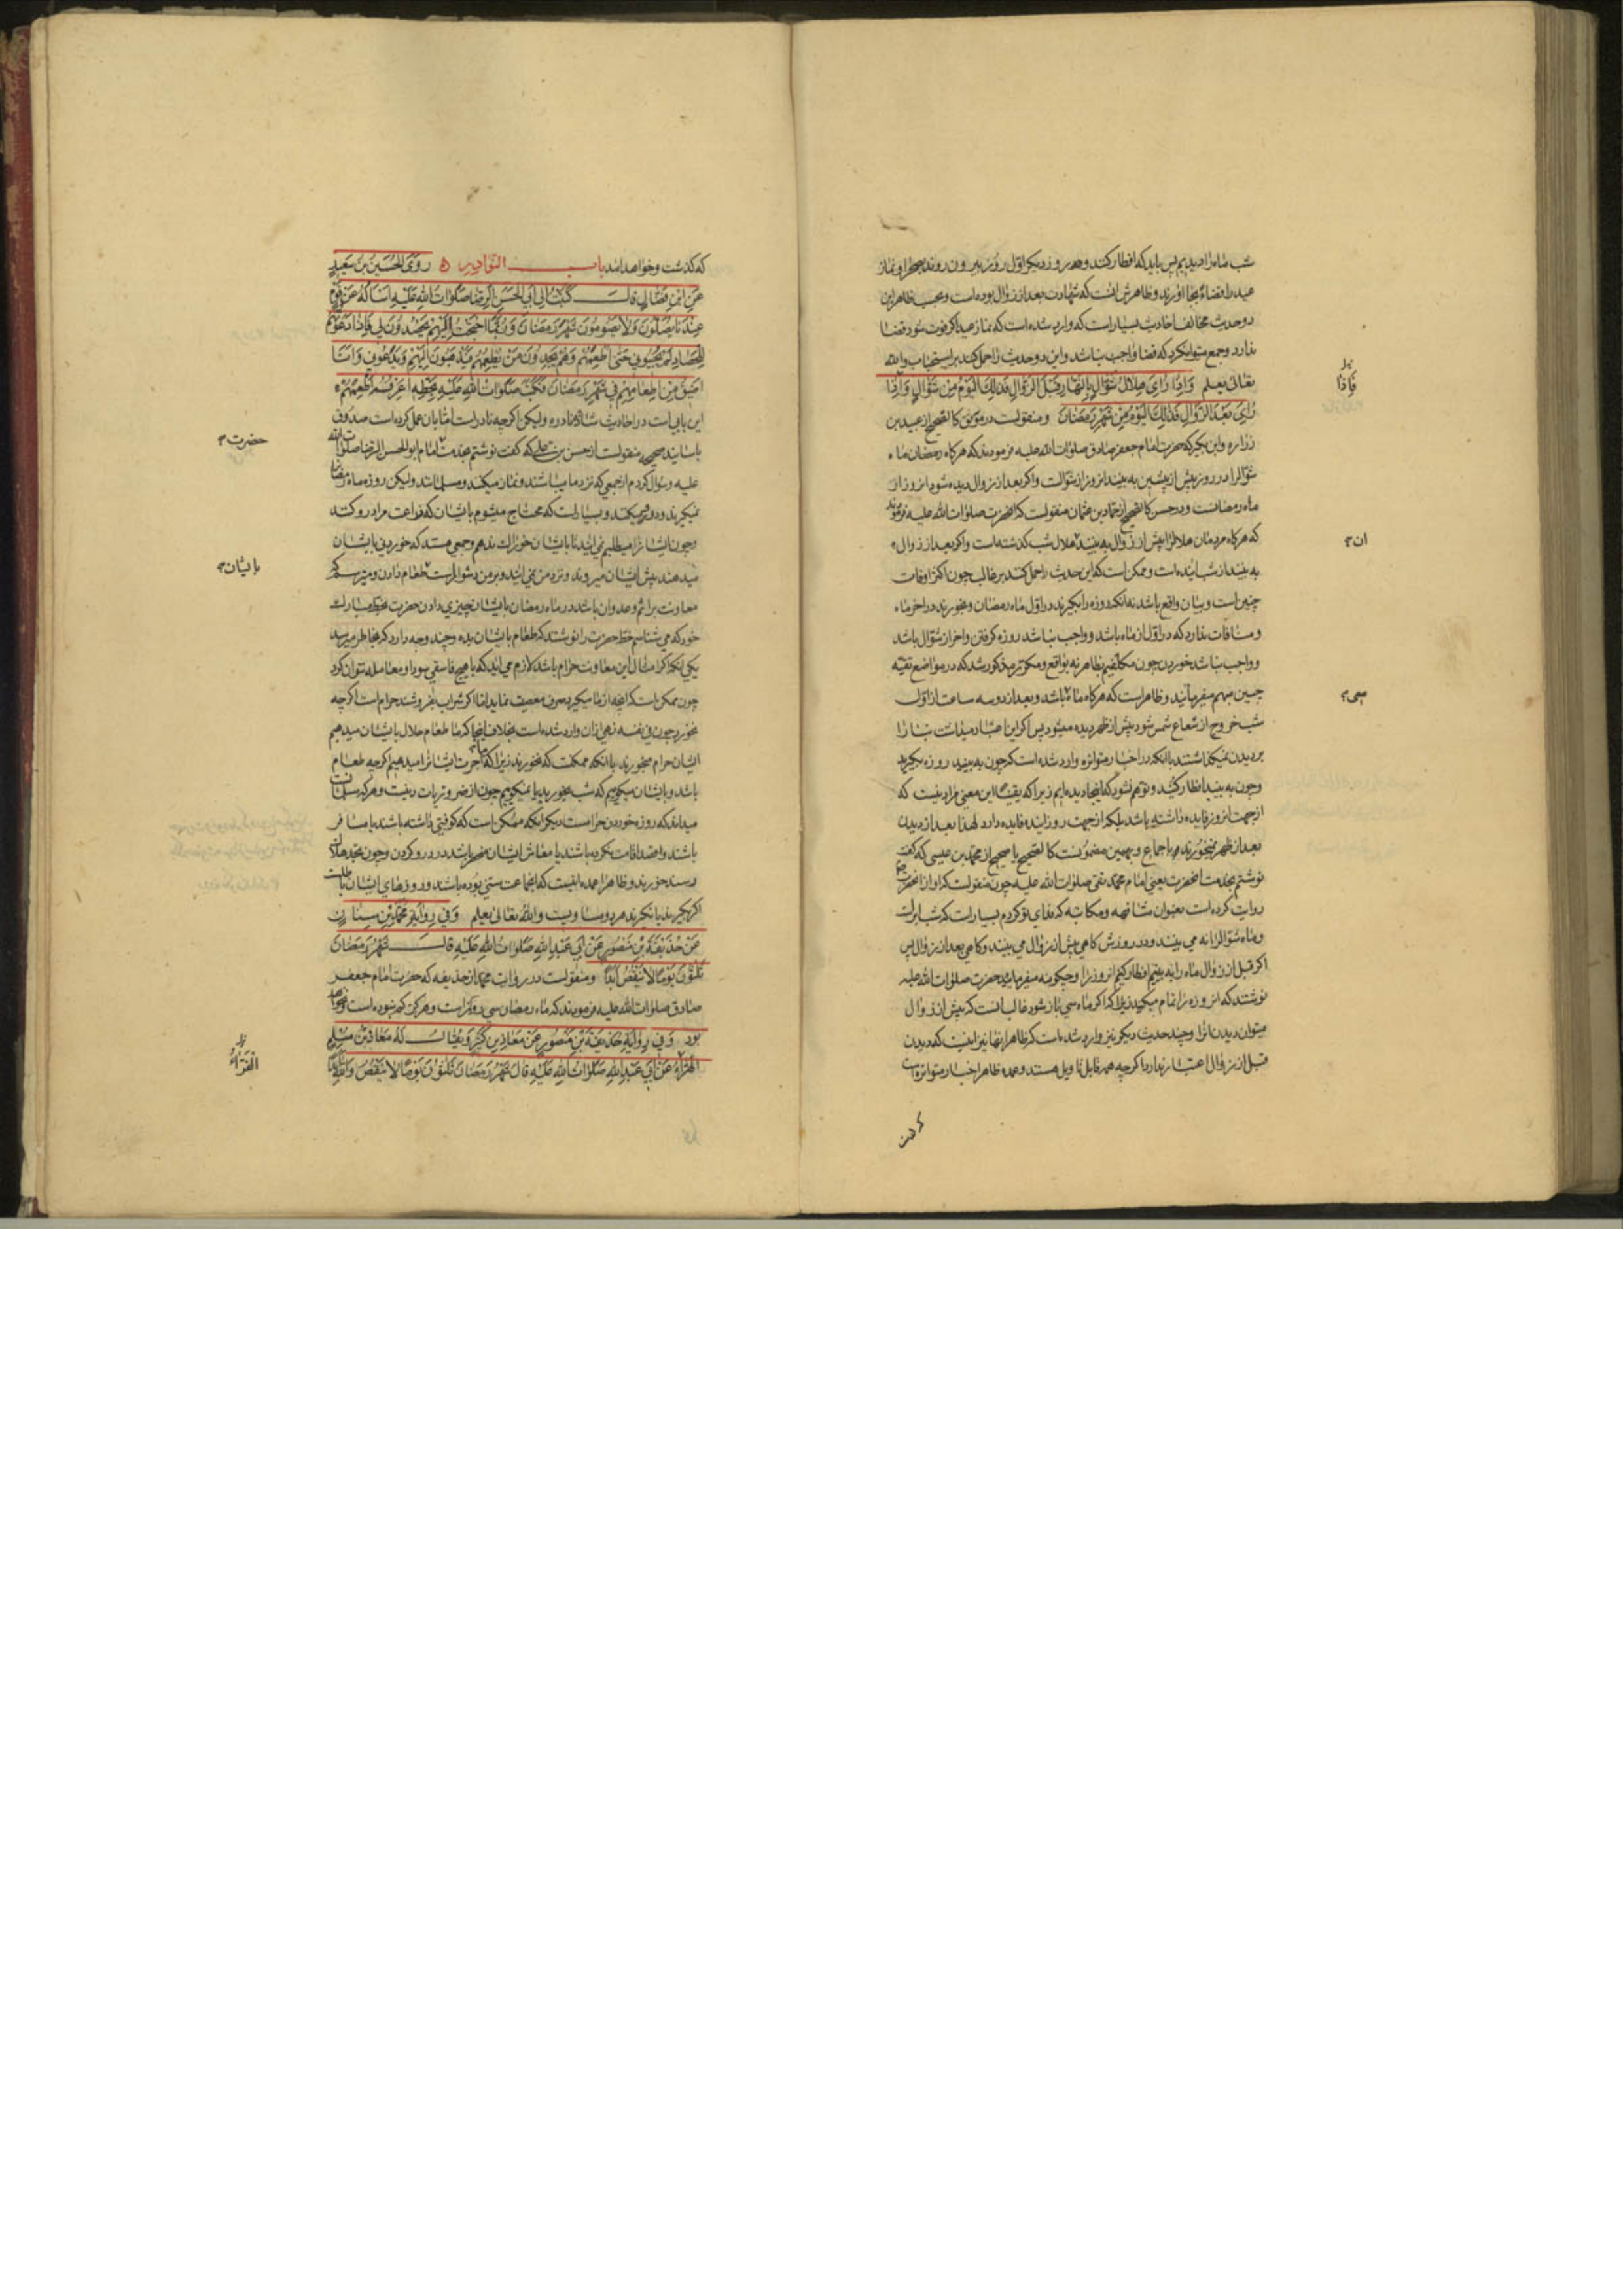 شب ماه را دیدیم پس باید که افطار کنند و هر روز دیگر اول روز بیرون روند بصحرا و نماز
عید را قضاء بجا آورند و ظاهرش آنست که شهادت بعد از زوال بوده است و بحسب ظاهر این
دو حدیث مخالف احادیث بسیار است که وارد شده است که نماز عید اگر فوت شود قضا
ندارد و جمع میتوان کرد که قضا واجب نباشد و این دو حدیث را حمل کنند بر استحباب والله
تعالی یعلم وَاِذَا رُاِیَ هِلَالُ شَوَّالٍ بِالنَّهَارِ قَبْلَ الزَّوَالِ فَذٰلِكَ الْیَوْمُ مِنْ شَوَّالٍ وَاِذَا
رُاِیَ بَعْدَ الزَّوَالِ فَذٰلِكَ الْیَوْمُ مِنْ شَهْرِ رَمَضَانَ و منقولست در موثق کالصحیح از عبید بن
زراره و ابن بکیر که حضرت امام جعفر صادق صلوات الله علیه فرمودند که هرگاه رمضان ماه
شوال را در روز پیش از پیشین به بینند آن روز از شوالست و اگر بعد از زوال دیده شود آن روز از
ماه رمضانست و در حسن کالصحیح از حماد بن عثمان منقولست که آنحضرت صلوات الله علیه فرمودند
که هرگاه مردمان هلال را پیش از زوال به بینند هلال شب گذشته است و اگر بعد از زوال
به بینند از شب آینده است و ممکن است که این حدیث را حمل کنند بر غالب چون اکثر اوقات
چنین است و بیان واقع باشد نه آنکه روزه را بگیرند در اول ماه رمضان و بخورند در آخر ماه
و منافات ندارد که در اول از ماه باشد و واجب نباشد روزه گرفتن و آخر از شوال باشد
و واجب نباشد خوردن چون مکلفیم بظاهر نه بواقع و مکرر مذکور شد که در مواضع تقیه
چنین مبهم میفرمایند و ظاهر است که هرگاه ماه باشد و بعد از دو سه ساعت از اول
شب خروج از شعاع شمس شود پیش از ظهر دیده میشود پس اگر این اعتبار میداشت بنا را
بر دیدن نمیگذاشتند با آنکه در اخبار متواتره وارد شده است که چون به بینید روزه بگیرید
و چون به بینید افطار کنید و توهم نشود که اینجا دیده ایم زیرا که یقینا این معنی مراد نیست که
از جهت آن روز فایده داشته باشد بلکه از جهت روز آینده فایده دارد لهذا بعد از دیدن
بعد از ظهر نمیخورند باجماع و بهمین مضمونست کالصحیح یا صحیح از محمد بن عیسی که گفت
نوشتم بخدمت آنحضرت یعنی امام محمد تقی صلوات الله علیه چون منقولست که او از آنحضرت
روایت کرده است بعنوان مشافهه و مکاتبه که فدای تو کردم بسیار است که شب ابر است
و ماه شوال را نه می بینند و در روزش گاهی پیش از زوال می بینند و گاهی بعد از زوال پس
اگر قبل از زوال ماه را به بینیم افطار کنیم آن روز را و چگونه میفرمایید حضرت صلوات الله علیه
نوشتند که آن روزه را تمام میکنید زیرا که اگر ماه سی باز شود غالب آنست که پیش از زوال
میتوان دیدن آن را و چند حدیث دیگر نیز وارد شده است که ظاهر آنها نیز اینست که دیدن
قبل از زوال اعتبار ندارد اگر چه همه قابل تاویل هستند و عمده ظاهر اخبار متواتره است
فَاِذَا
ان
سی
که گذشت و خواهد آمد باب النوادر رَوَی الْحُسَیْنُ بْنُ سَعِیدٍ
عَنِ ابْنِ فَضَّالٍ قَالَ کَتَبْتُ اِلَی اَبِی الْحَسَنِ الرِّضَا صَلَوَاتُ اللهِ عَلَیْهِ اَسْاَلُهُ عَنْ قَوْمٍ
عِنْدَنَا یُصَلُّونَ وَلَا یَصُومُونَ شَهْرَ رَمَضَانَ وَرُبَّمَا احْتَجْتُ اِلَیْهِمْ یَحْصُدُونَ لِی فَاِذَا دَعَوْتُهُمْ
لِلْحَصَادِ لَمْ یُجِیبُونِی حَتّی اُطْعِمَهُمْ وَهُمْ یَجِدُونَ مَنْ یُطْعِمُهُمْ فَیَذْهَبُونَ اِلَیْهِمْ وَیَدَعُونِی وَاَنَا
اَضِیقُ مِنْ اِطْعَامِهِمْ فِی شَهْرِ رَمَضَانَ فَکَتَبَ صَلَوَاتُ اللهِ عَلَیْهِ بِخَطِّهِ اَعْرِفُهُ اَطْعِمْهُمْ
این بابی است در احادیث شاذه نادره ولیکن اگر چه نادر است اما بآن عمل کرده است صدوق
باسانید صحیحه منقولست از حسن بن علی که گفت نوشتم بخدمت امام ابو الحسن الرضا صلوات الله
علیه و سؤال کردم از جمعی که نزد ما میباشند و نماز میکنند و مسلمانند ولیکن روزه ماه رمضان
نمیگیرند و بسیار است که محتاج میشوم بایشان که زراعت مرا درو کنند
و چون ایشان را میطلبم نمی آیند تا بایشان خوراك ندهم و جمعی هستند که خوردنی بایشان
میدهند پیش ایشان میروند و نزد من نمی آیند و بر من دشوار است طعام دادن و میترسم که
معاونت بر اثم و عدوان باشد در ماه رمضان بایشان چیزی دادن حضرت بخط مبارك
خود که می شناسم خط حضرت را نوشتند که طعام بایشان بده و چند وجه دارد که بخاطر میرسد
یکی آنکه اگر امثال این معاونت حرام باشد لازم می آید که با هیچ فاسقی سودا و معامله نتوان کرد
چون ممکن است که آنچه از ما میگیرد صرف معصیت نماید اما اگر شراب بفروشند حرام است اگر چه
نخورد چون فی نفسه نهی از آن وارد شده است بخلاف اینجا که ما طعام حلال بایشان میدهیم
ایشان حرام میخورند با آنکه ممکنست که نخورند زیرا که ما اجرت ایشان را میدهیم اگر چه طعام
باشد و بایشان میگوییم که شب بخورید یا نمیگوییم چون از ضروریات دینست و هر که مسلمانست
میداند که روزه خوردن حرامست دیگر آنکه ممکن است که کوفتی داشته باشند یا مسافر
باشند و قصد اقامت نکرده باشند یا معاش ایشان منحصر باشد در درو کردن و چون بحد هلاك
رسند خورند و ظاهرا عمده اینست که جماعت سنی بوده باشند و روزهای ایشان باطلست
اگر بگیرند یا نگیرند هر دو مساویست والله تعالی یعلم وَفِی رِوَایَةِ مُحَمَّدِ بْنِ سِنَانٍ
عَنْ حُذَیْفَةَ بْنِ مَنْصُورٍ عَنْ اَبِی عَبْدِ اللهِ صَلَوَاتُ اللهِ عَلَیْهِ قَالَ شَهْرُ رَمَضَانَ
ثَلٰثُونَ یَوْمًا لَا یَنْقُصُ اَبَدًا و منقولست در روایت محمد از حذیفه که حضرت امام جعفر
صادق صلوات الله علیه فرمودند که ماه رمضان سی روز است و هرگز کم نبوده است و نخواهد
بود وَفِی رِوَایَةِ حُذَیْفَةَ بْنِ مَنْصُورٍ عَنْ مُعَاذِ بْنِ کَثِیرٍ وَیُقَالُ لَهُ مُعَاذُ بْنُ مُسْلِمٍ
الْهَرَّاءُ عَنْ اَبِی عَبْدِ اللهِ صَلَوَاتُ اللهِ عَلَیْهِ قَالَ شَهْرُ رَمَضَانَ ثَلٰثُونَ یَوْمًا لَا یَنْقُصُ وَاللهِ اَبَدًا
حضرت
بایشان
الْفَرَّاءُ